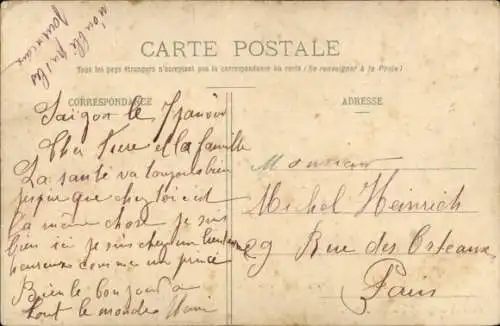 n'oublie pas les
journaux
CARTE POSTALE
Tous les pays étrangers n'acceptent pas la correspondance au recto (Se renseigner à la Poste)
CORRESPONDANCE
ADRESSE
Saigon le 7 Janvier
Cher Frere et la famille
La santé va toujours bien
j'esper que chez toi c'est
la même chose je suis
bien ici je suis chez un
heureux comme un prince
Bien le bonjour a
tout le monde
Monsieur
Michel Heinrich
29 Rue des Orteaux
Paris